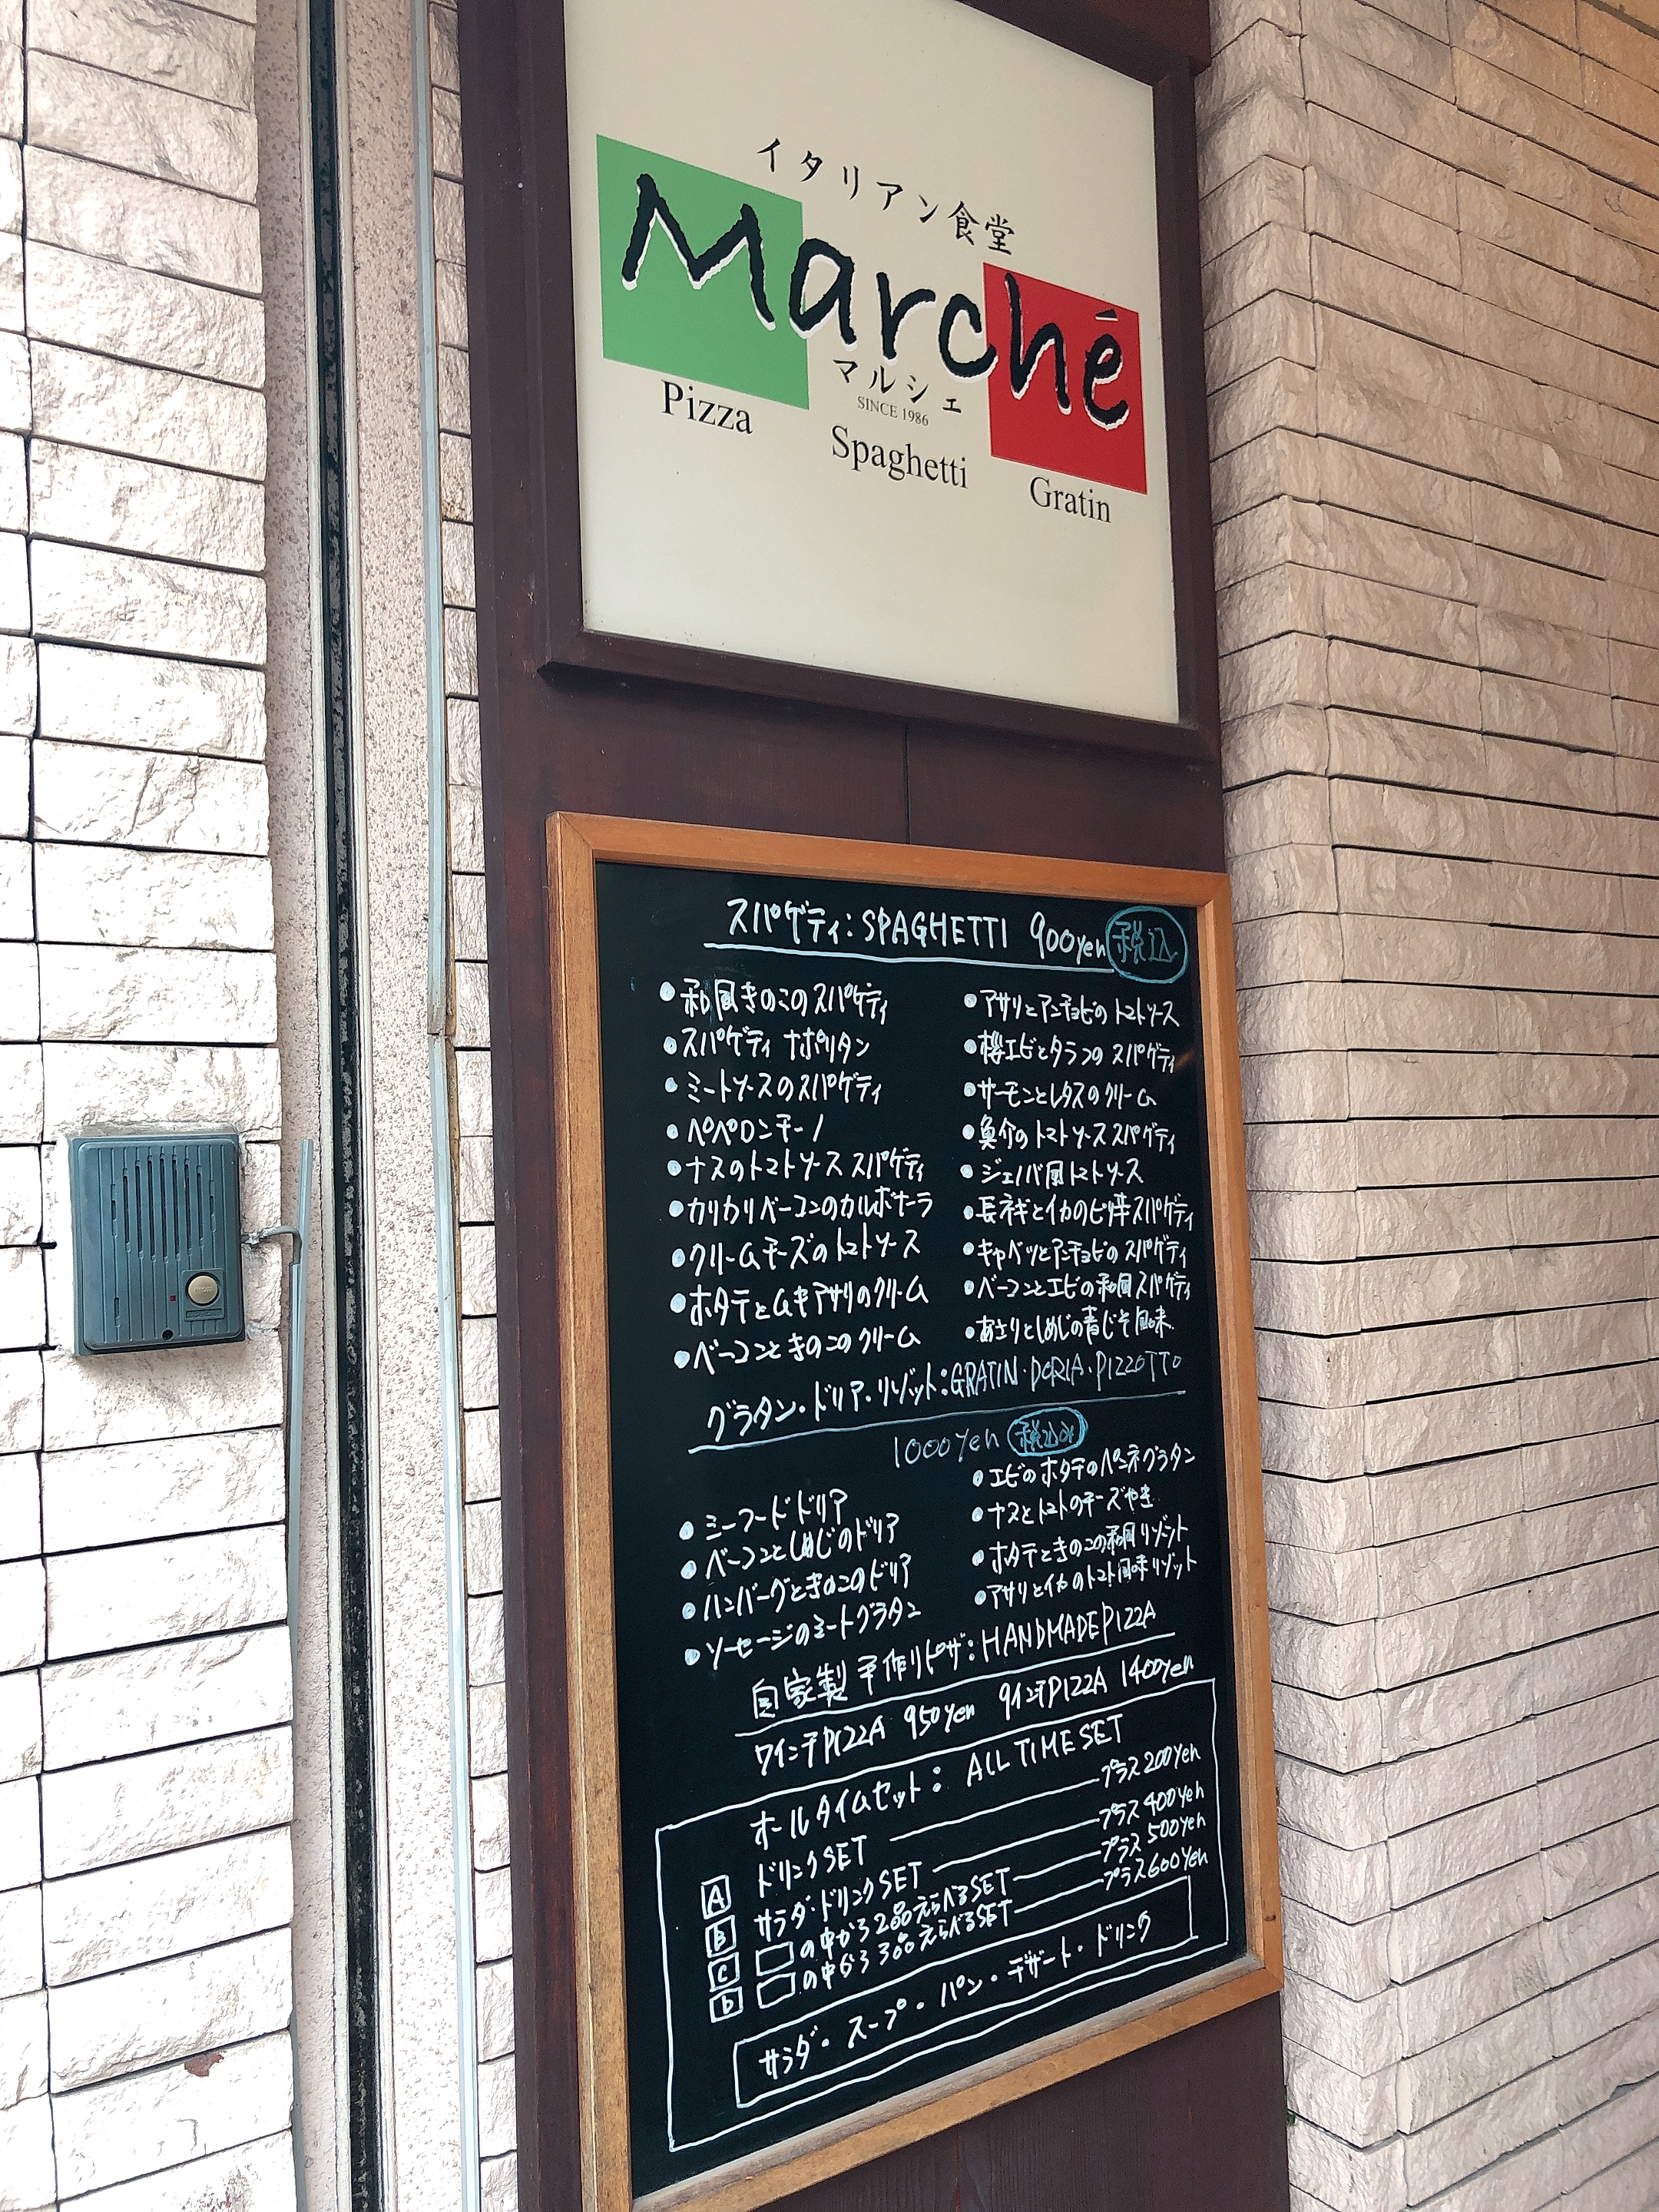 イタリアン食堂
Marché
マルシェ
SINCE 1986
Pizza
Spaghetti
Gratin
スパゲティ:SPAGHETTI 900yen 税込
・和風きのこのスパゲティ
・スパゲティ ナポリタン
・ミートソースのスパゲティ
・ペペロンチーノ
・ナスのトマトソース スパゲティ
・カリカリベーコンのカルボナーラ
・クリームチーズのトマトソース
・ホタテとムキアサリのクリーム
・ベーコンときのこのクリーム
・アサリとアンチョビのトマトソース
・桜エビとタラコの スパゲティ
・サーモンとレタスのクリーム
・魚介のトマトソース スパゲティ
・ジェノバ風トマトソース
・長ネギとイカのピリ辛スパゲティ
・キャベツとアンチョビのスパゲティ
・ベーコンとエビの和風スパゲティ
・あさりとしめじの青じそ風味
グラタン・ドリア・リゾット:GRATIN・DORIA・PIZZOTTO
1000yen 税込み
・シーフードドリア
・ベーコンとしめじのドリア
・ハンバーグときのこのドリア
・ソーセージのミートグラタン
・エビのホタテのペンネグラタン
・ナスとトマトのチーズやき
・ホタテときのこの和風リゾット
・アサリとイカのトマト風味リゾット
自家製 手作りピザ:HANDMADE PIZZA
7インチPIZZA 950yen 9インチPIZZA 1400yen
ホールタイムセット: ALL TIME SET
A ドリンクSET プラス200yen
B サラダ・ドリンクSET プラス400yen
C の中から2品えらべるSET プラス500yen
D の中から3品えらべるSET プラス600yen
サラダ・スープ・パン・デザート・ドリンク